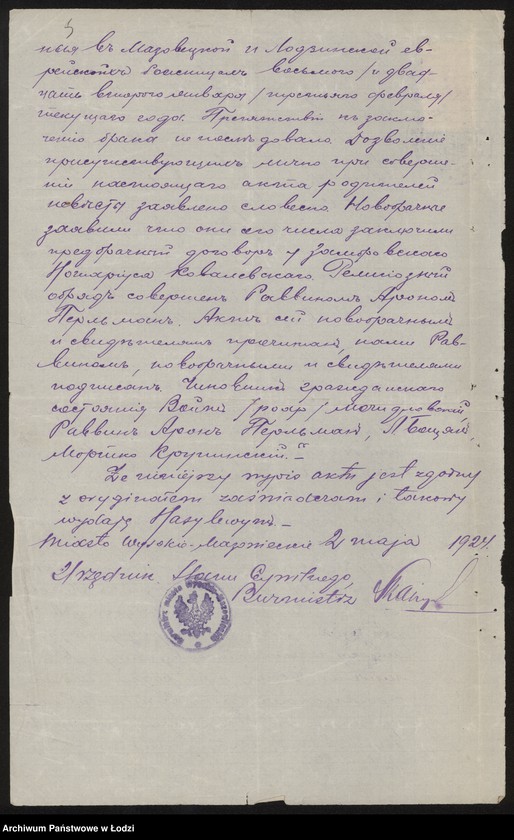 ныя въ Мазовецкой и Лодзинской ев-
рейскихъ божницахъ восьмого /и двад-
цать второго января/ третьяго февраля/
текущаго года. Препятствій къ заклю-
ченію брака не послѣдовало. Дозволеніе
присутствующихъ лично при соверше-
ніи настоящаго акта родителей
невѣсты заявлено словесно. Новобрачные
заявили что они его числа заключили
предбрачный договоръ у
Нотаріуса Ковалевскаго. Религіозный
обрядъ совершенъ Раввиномъ Арономъ
Перльманъ. Актъ сей новобрачнымъ
и свидѣтелямъ прочитанъ, нами Рав-
виномъ, новобрачными и свидѣтелями
подписанъ. Чиновникъ гражданскаго
состоянія Войтъ
Раввинъ Аронъ Перльманъ,
Мошко
Że niniejszy wypis aktu jest zgodny
z oryginałem zaświadczam i takowy
wydaję
Miasto Wysokie-Mazowieckie 2 maja 1924.
Urzędnik Stanu Cywilnego,
Burmistrz
Archiwum Państwowe w Łodzi